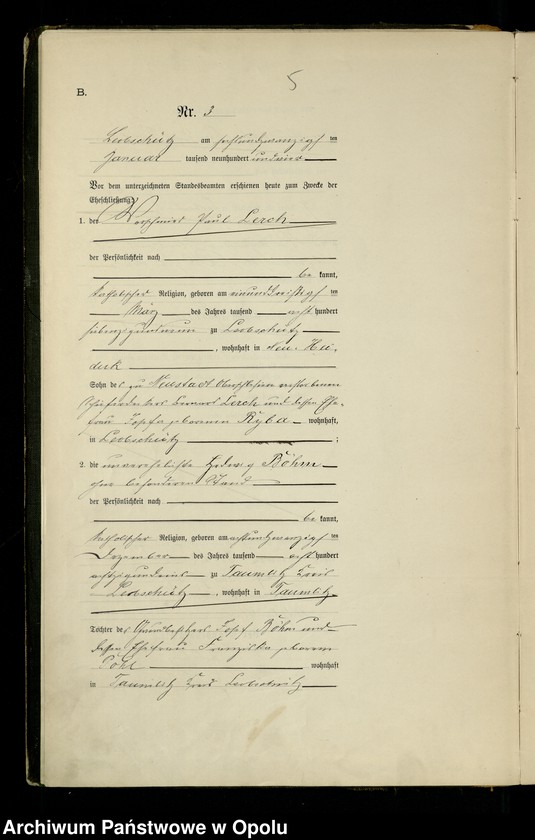 5
B.
Nr. 3
Leobschütz am sechsundzwanzigsten
Januar tausend neunhundert und eins
Vor dem unterzeichneten Standesbeamten erschienen heute zum Zwecke der
Eheschließung:
1. der Paul Lerch
der Persönlichkeit nach
be kannt,
katholischer Religion, geboren am einunddreißigsten
März des Jahres tausend acht hundert
siebenzig und neun zu Leobschütz
, wohnhaft in Neu-Hei-
duk
Sohn des zu Neustadt Oberschlesien verstorbenen
Lerch und dessen Ehe-
frau Josefa geborenen Ryba wohnhaft
in Leobschütz ;
2. die unverehelichte Hedwig Böhm
ohne besonderen Stand
der Persönlichkeit nach
be kannt,
katholischer Religion, geboren am achtundzwanzigsten
Dezember des Jahres tausend acht hundert
achtzig und eins zu Taumlitz Kreis
Leobschütz , wohnhaft in Taumlitz
Tochter des Josef Böhm und
dessen Ehefrau Franziska geborenen
Pohl wohnhaft
in Taumlitz Kreis Leobschütz
Archiwum Państwowe w Opolu